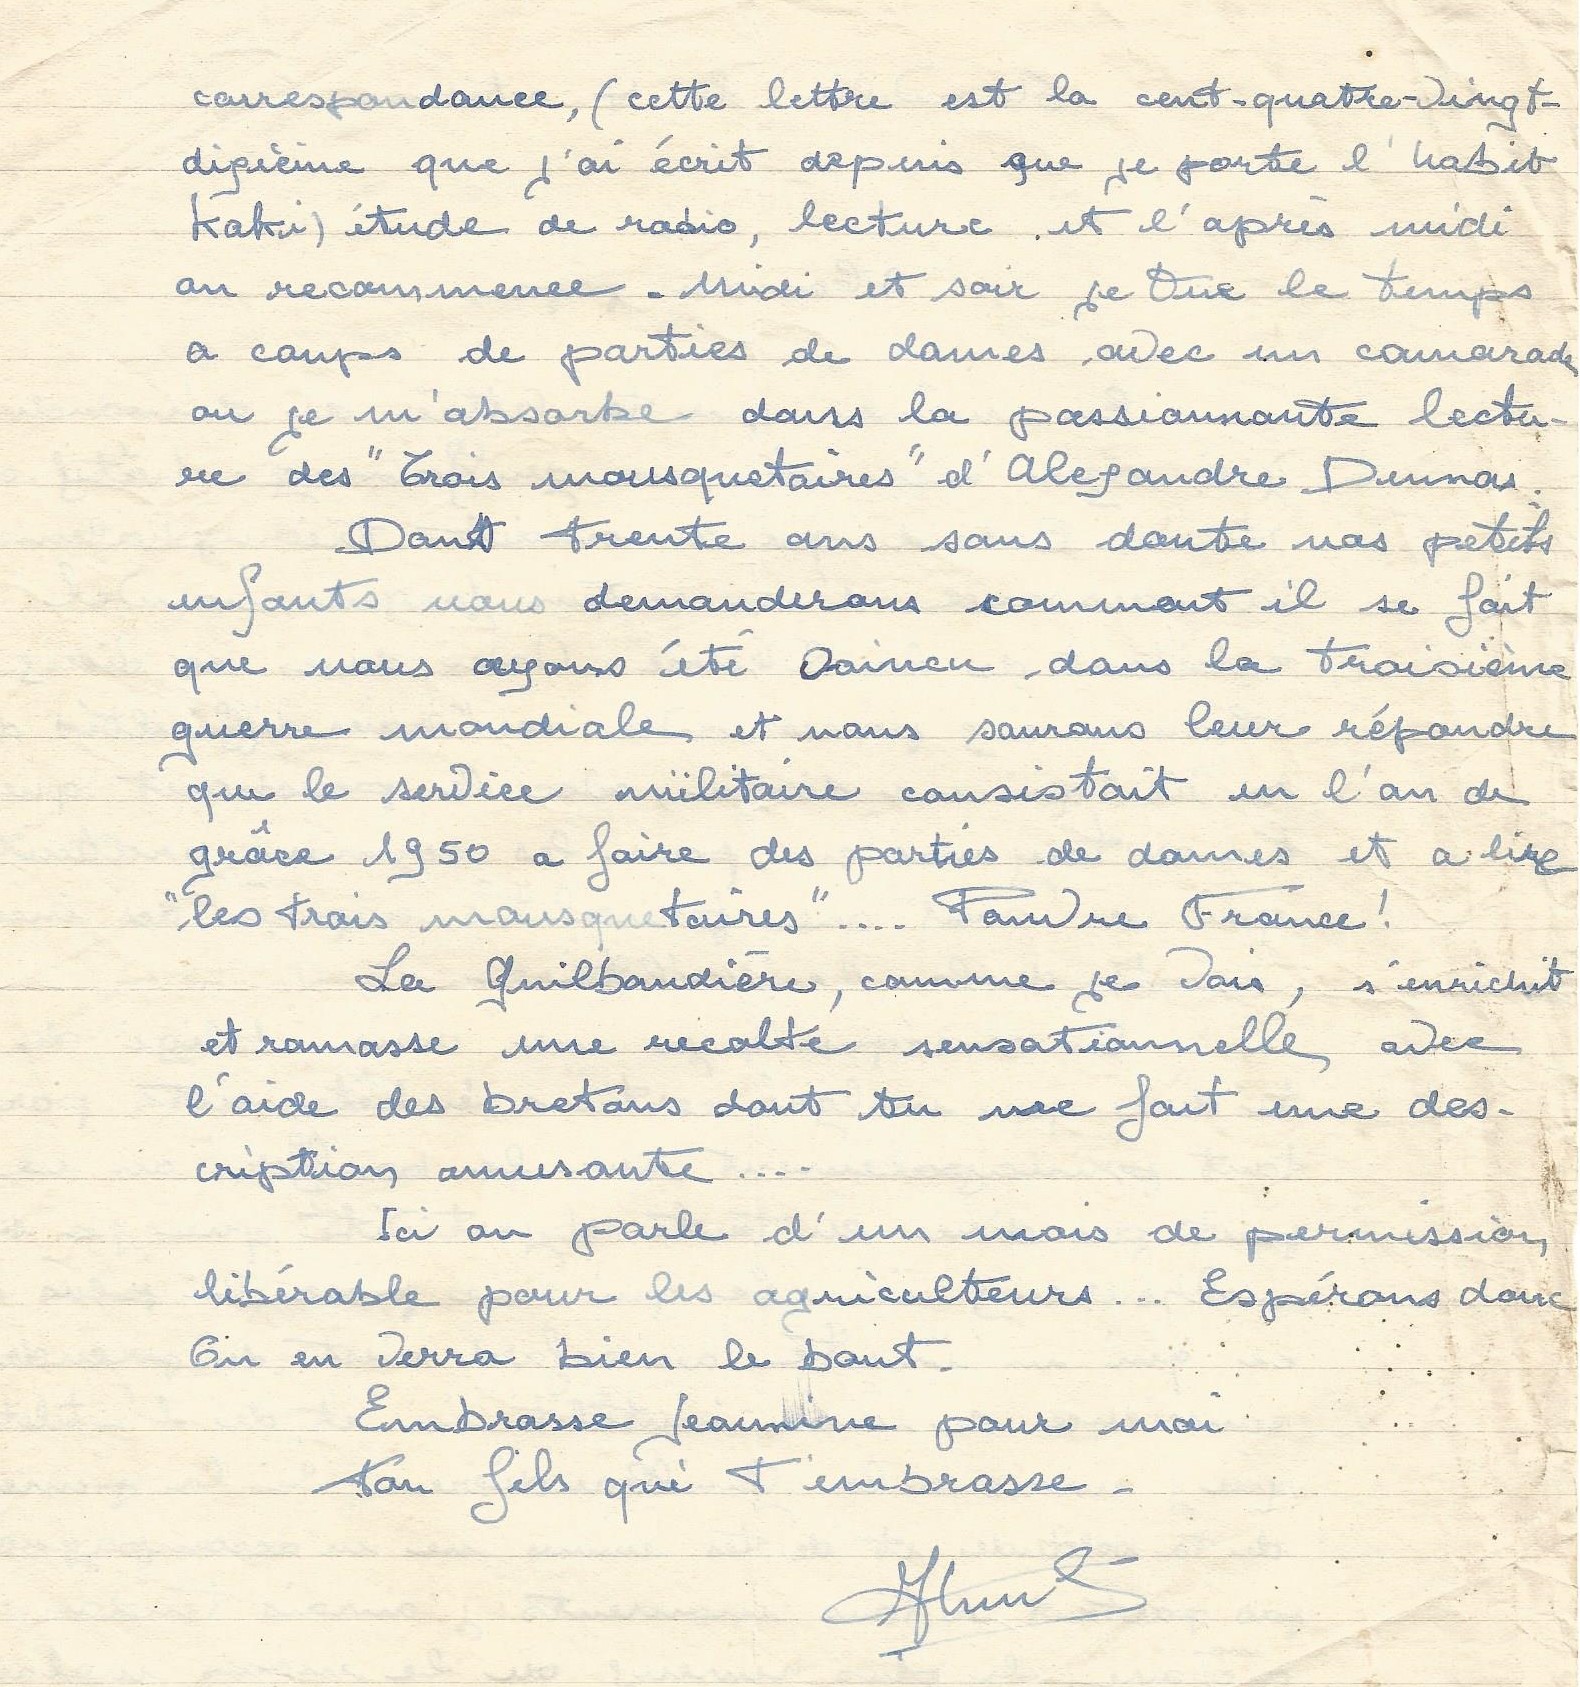 correspondance, (cette lettre est la cent-quatre-vingt-
dixième que j'ai écrit depuis que je porte l'habit
Kaki) étude de radio, lecture . et l'après midi
on recommence - Midi et soir je tue le temps
a coups de parties de dames avec un camarade
ou je m'absorbe dans la passionnante lectu-
re des "Trois mousquetaires" d'Alexandre Dumas.
Dans trente ans sans doute nos petits
enfants nous demanderons comment il se fait
que nous ayons été vaincu dans la troisième
guerre mondiale et nous saurons leur répondre
que le service militaire consistait en l'an de
grâce 1950 a faire des parties de dames et a lire
"les trois mousquetaires".... Pauvre France!
La Guilbaudière, comme je vois, s'enrichit
et ramasse une recolte sensationnelle avec
l'aide des bretons dont tu me fait une des-
cription amusante ....
Ici on parle d'un mois de permission
libérable pour les agriculteurs ... Espérons donc
On en verra bien le bout.
Embrasse Jeannine pour moi
Ton fils qui t'embrasse -